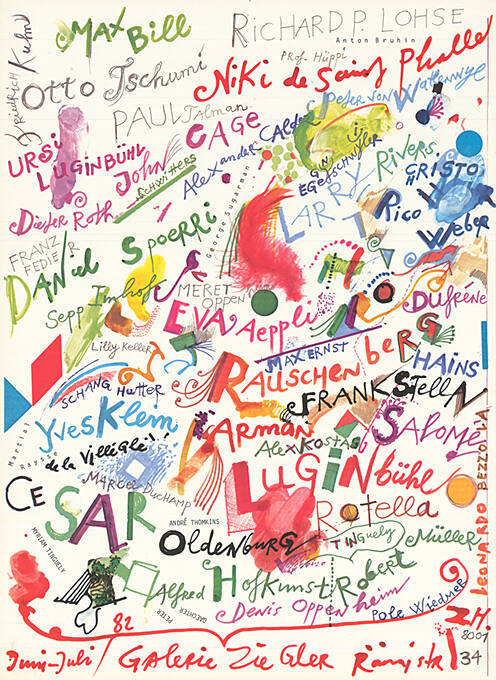 MAX Bill
RICHARD P. LOHSE
Anton Bruhin
Friedrich Kuhn
Otto Tschumi
Prof. Hüppi
Niki de Saint Phalle
Peter von Wattenwyl
PAUL Talman
CAGE
Alexander CALDER
URSi LUGiNBÜHL
John
SCHWITTERS
EGgedSchwyler
LARRY Rivers
CHRISTO
Dieter Roth
George Sugarman
Rico Weber
FRANZ FEDIER
DANiel Spoerri
Sepp Imhof
MERET OPPEN
EVA Aeppli
DUfrêne
Lilly Keller
MAX ERNST
RAUSCHENbeRG
HAINS
SCHANG Hutter
FRANK STELLA
Martial Raysse
Yves Klein
ARMAN
SALOMÉ
de la Villéglé!
Alex Kostas
MARCEL DUCHAMP
LUGiNbühl
CESAR
Rotella
ANDRÉ THOMKINS
OLDENBURG
TINGuely
Müller
MYRIAM TINGUELY
Alfred Hofkunst
Robert
PETER GAECHTER
Denis Oppenheim
Pole Wiedmer
LEONARDO BEZZOLA
82
ZH.
8001
Juni-Juli / GALERiE ZiEGLER Rämistr 34